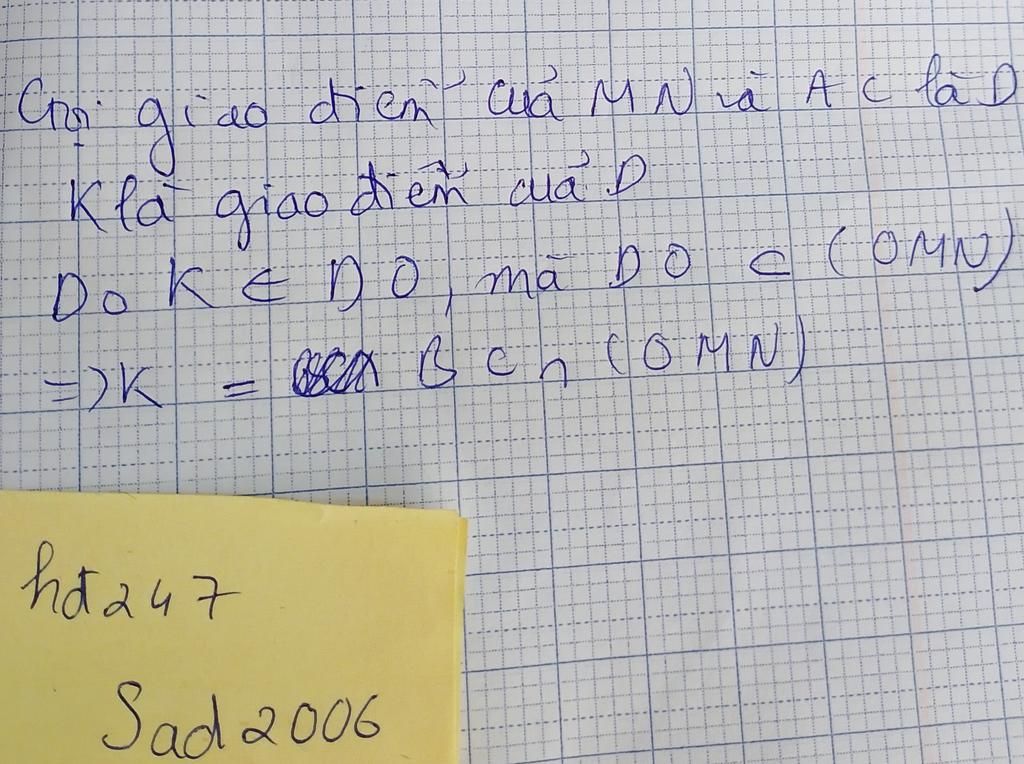 Gọi giao điểm của MN và AC là D
K là giao điểm của D
Do K ∈ DO, mà DO ⊂ (OMN)
=> K = BC ∩ (OMN)
hđ247
Sad2006